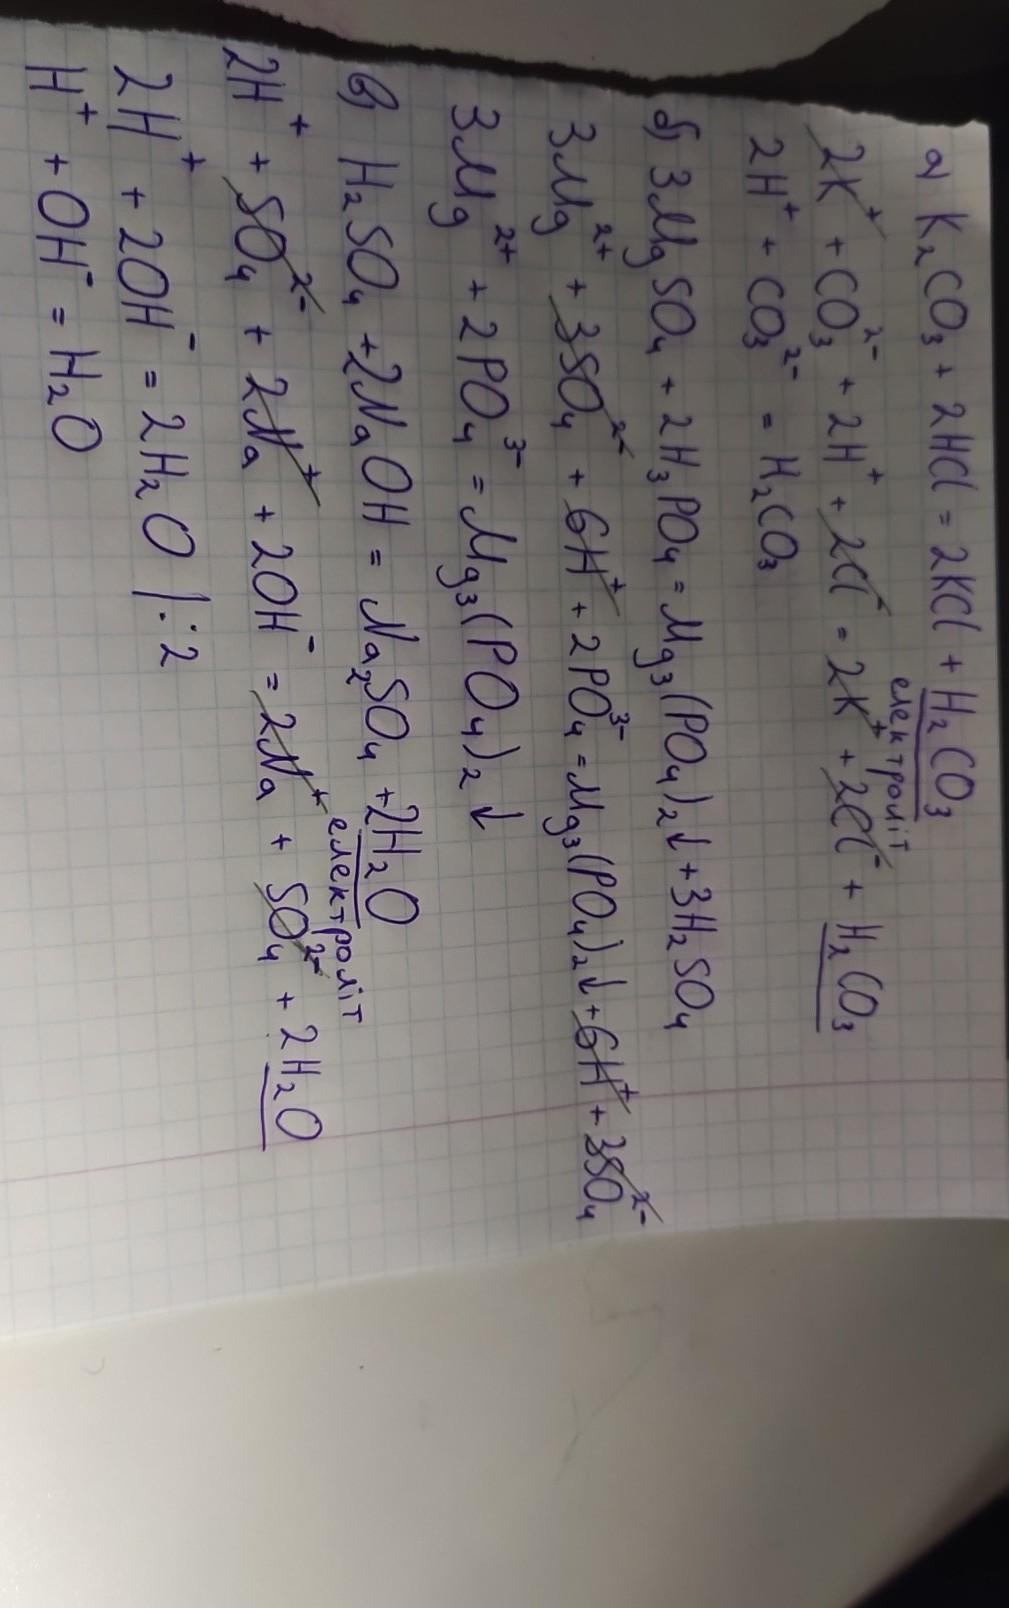 а) K₂CO₃ + 2HCl = 2KCl + H₂CO₃
електроліт
2K⁺ + CO₃²⁻ + 2H⁺ + 2Cl⁻ = 2K⁺ + 2Cl⁻ + H₂CO₃
2H⁺ + CO₃²⁻ = H₂CO₃
б) 3MgSO₄ + 2H₃PO₄ = Mg₃(PO₄)₂↓ + 3H₂SO₄
3Mg²⁺ + 3SO₄²⁻ + 6H⁺ + 2PO₄³⁻ = Mg₃(PO₄)₂↓ + 6H⁺ + 3SO₄²⁻
3Mg²⁺ + 2PO₄³⁻ = Mg₃(PO₄)₂↓
в) H₂SO₄ + 2NaOH = Na₂SO₄ + 2H₂O
електроліт
2H⁺ + SO₄²⁻ + 2Na⁺ + 2OH⁻ = 2Na⁺ + SO₄²⁻ + 2H₂O
2H⁺ + 2OH⁻ = 2H₂O |:2
H⁺ + OH⁻ = H₂O